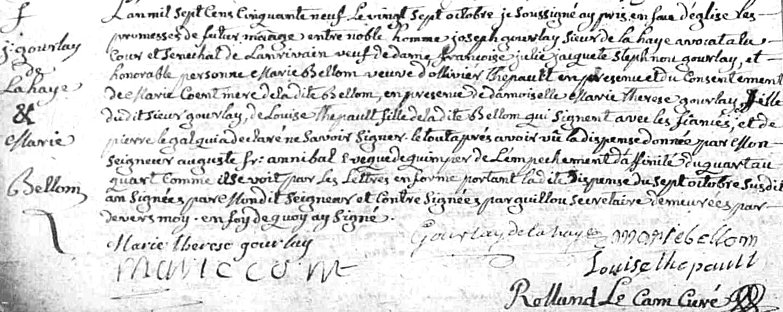 f
j: gourlay
de
La haye
&
Marie
Bellom
Lan mil Sept Cens Cinquante neuf Le vingt Sept octobre je Soussigné ay pris en face d'église Les
promesses de futur mariage entre noble homme joseph gourlay Sieur de La haye avocat a La
Cour et Senechal de Lanrivain veuf de dame francoise julie jaquete gourlay, et
honorable personne Marie Bellom veuve d'ollivier Thepault en presence et du Consentement
de Marie Coent mere de La dite Bellom, en presence de damoiselle Marie Therese gourlay fille
du dit Sieur gourlay, de Louise Thepault fille de la dite Bellom qui Signent avec les fiancés, et de
pierre Legal qui a declaré ne Savoir Signer. le tout après avoir vû la dispense donnée par Mon
Seigneur auguste fr: annibal Eveque de quimper de L'empechement d'affinité du quart au
quart Comme il Se voit par Les Lettres en forme portant la dite Dispense du Sept octobre Susdit
an Signées par Mondit Seigneur et Contre Signées par guillou Secretaire demeurées par
devers moy. en foy de quoy ay Signé.
Marie therese gourlay
Gourlay de la haye
marie bellom
Louise thepault
Rolland Le Cam Curé